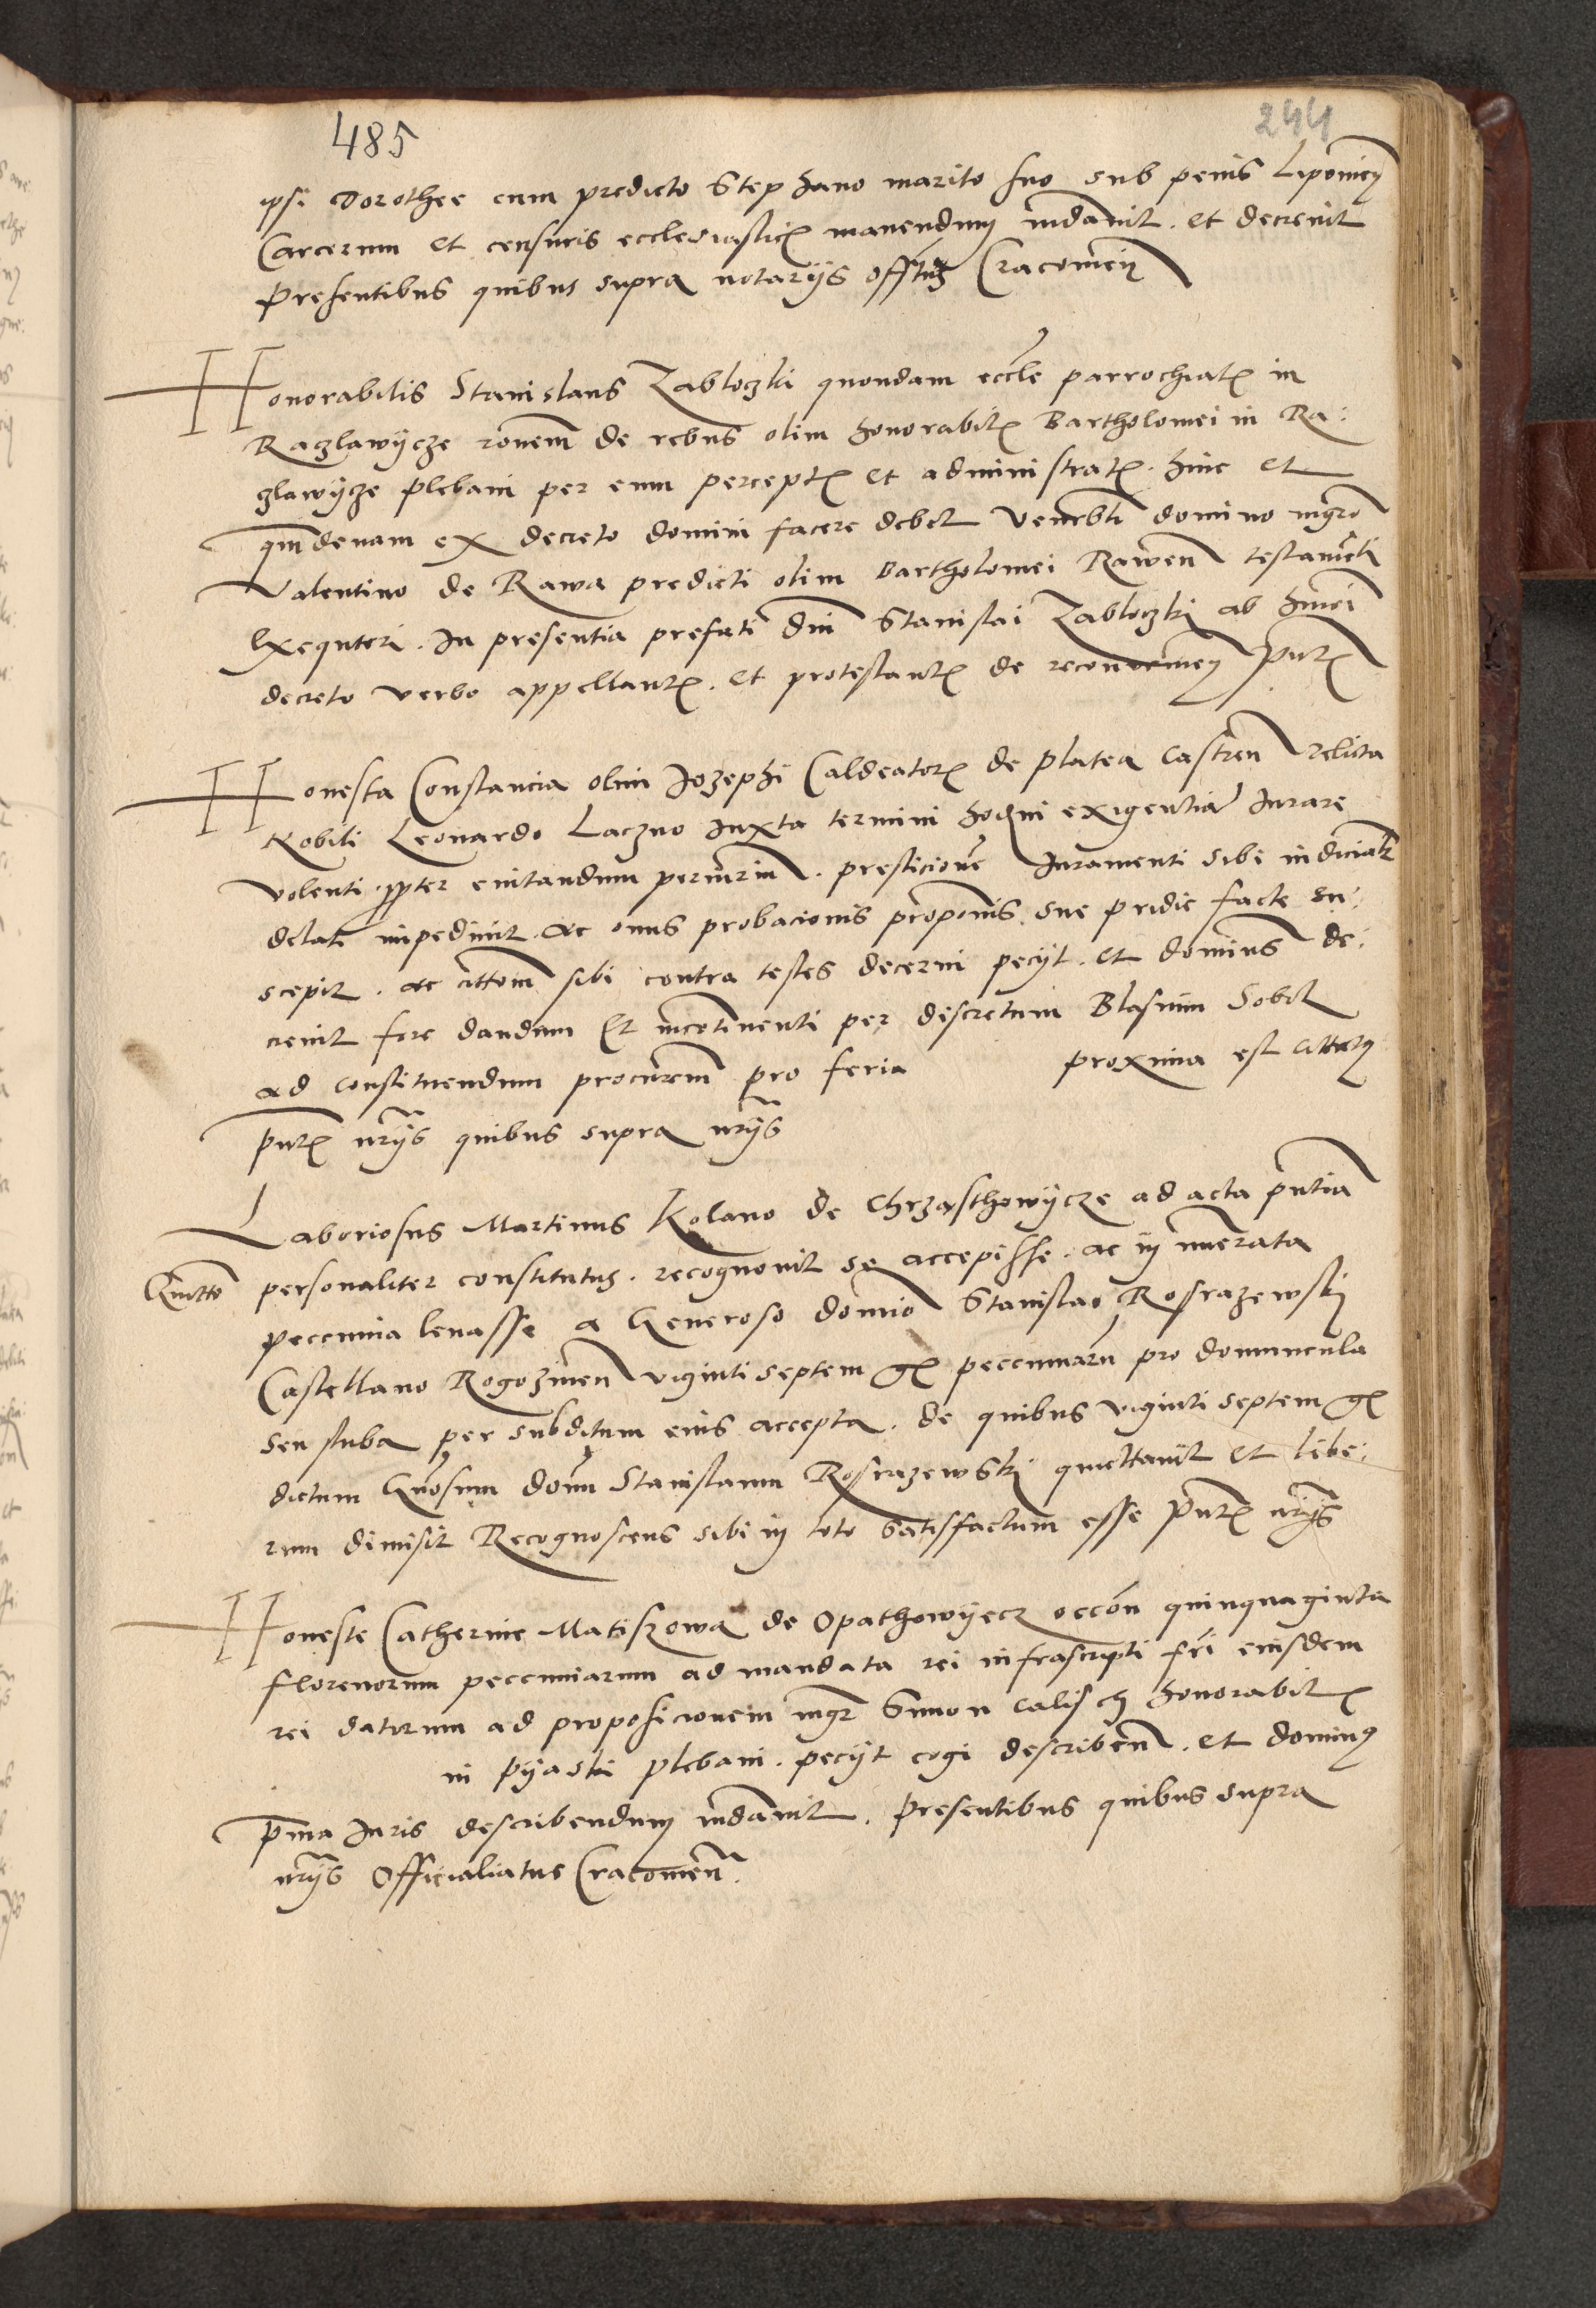 485
244
ipsi Dorothee cum predicto Stephano marito suo sub penis Lipowiecz
Carcerum et censuris ecclesiastic manendum mdavit . et decrevit
Presentibus quibus supra notarijs offtus Cracovien
Honorabilis Stanislaus Zabloczki quondam eccle parrochial in
Raczlawycze ronem de rebus olim honorabil Bartholomei in Ra:
czlawycze plebani per eum percept et administrat . hinc et
qundenam ex decreto domini facere debet Venerbli domino mgro
Valentino de Rawa predicti olim Bartholomei Rawen testamenti
Exequtori . In presentia prefati dni Stanislai Zabloczki ab hmoi
decreto verbo appellant . et protestant de Pnt
Honesta Constancia olim Jozephi Caldeator de platea Castren relicta
Nobili Leonardo Laczno Juxta termini hodni exigentiam Jurare
volenti . ppter evitandum periurium . presticione Juramenti sibi iudicial
delati impedivit . ac onus probacionis proponis sue pridie facte su:
scepit . ac attom sibi contra testes decerni pecijt . et dominus de:
crevit fore dandum Et incotinenti per discretum Blasium Sobel
ad constituendum procurem pro feria proxima est
Pnt nrijs quibus supra nrijs
Laboriosus Martinus Kolano de Chrzasthowycze ad acta pntia
Quitto personaliter constitutus . recognovit se accepisse . ac in numerata
peccunia levasse a Generoso domino Stanislao Rosrazewski
Castellano Rogozinen viginti septem gr peccuniaru pro domuncula
seu stuba per subditum eius accepta . de quibus viginti septem gr
dictum Gnosum domu Stanislaum Rosrazewski quittavit et libe:
rum dimisit Recognoscens sibi in toto satisfactum esse Pnt nrijs
Honeste Catherine Matiszowa de Opathowyecz occon quinquaginta
florenorum peccuniarum ad mandata rei infrascripti fri eiusdem
rei datorum ad proposicionem mgr Simon Calisch honorabil
in Pyaski plebani . pecijt cogi describen . et dominus
pma Juris describendum mdavit . Presentibus quibus supra
nrijs Officialiatus Cracovien